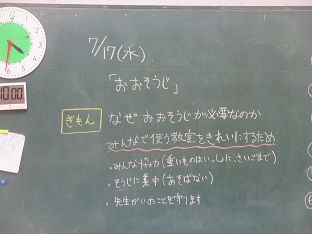 7/17(水)
「おおそうじ」
ぎもん なぜおおそうじが必要なのか
みんなで使う教室をきれいにするため
・みんな協力(重いものはいっしょに、さいごまで)
・そうじに集中(あそばない)
・先生がいったことを守ります
10:00